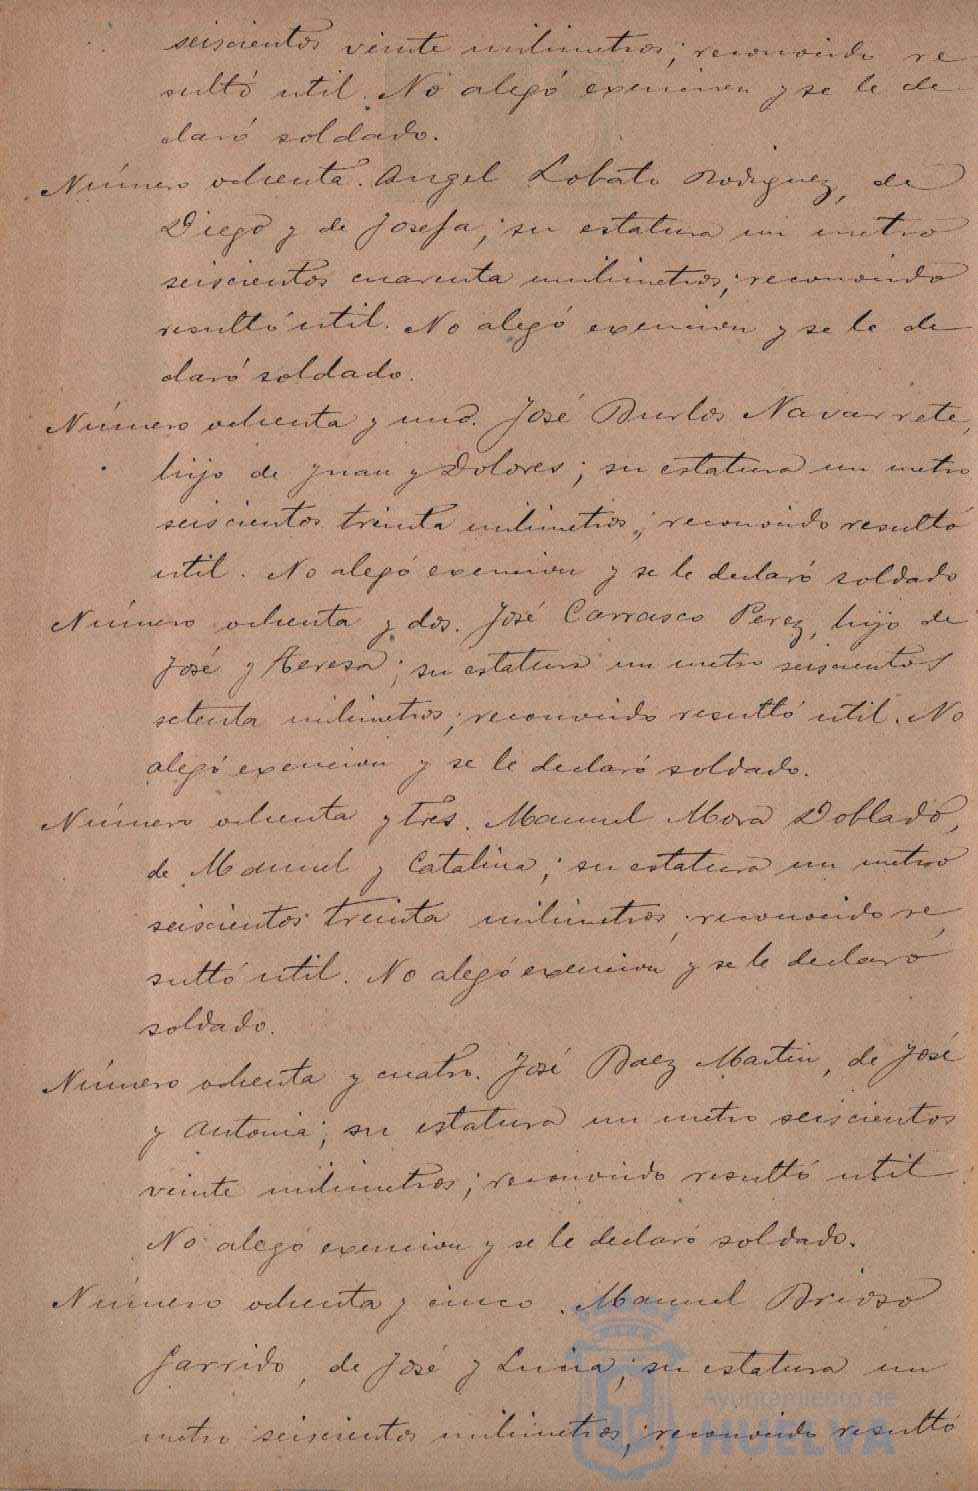 seiscientos veinte milimetros; reconocido re
sultó util. No alegó exencion y se le de
claró soldado.
Número ochenta. Angel Lobato Rodriguez, de
Diego y de Josefa; su estatura un metro
seiscientos cuarenta milimetros; reconocido
resultó util. No alegó exencion y se le de
claró soldado.
Número ochenta y uno. José Burlos Navarrete,
hijo de Juan y Dolores; su estatura un metro
seiscientos treinta milimetros; reconocido resultó
util. No alegó exencion y se le declaró soldado
Número ochenta y dos. José Carrasco Perez, hijo de
José y Teresa; su estatura un metro seiscientos
setenta milimetros; reconocido resultó util. No
alegó exencion y se le declaró soldado.
Número ochenta y tres. Manuel Mora Doblado,
de Manuel y Catalina; su estatura un metro
seiscientos treinta milimetros, reconocido re
sultó util. No alegó exencion y se le declaró
soldado.
Número ochenta y cuatro. José Baez Martin, de José
y Antonia; su estatura un metro seiscientos
veinte milimetros; reconocido resultó util
No alegó exencion y se le declaró soldado.
Número ochenta y cinco. Manuel Brioso
Garrido, de José y Lucia; su estatura un
metro seiscientos milimetros; reconocido resultó
Ayuntamiento de
HUELVA